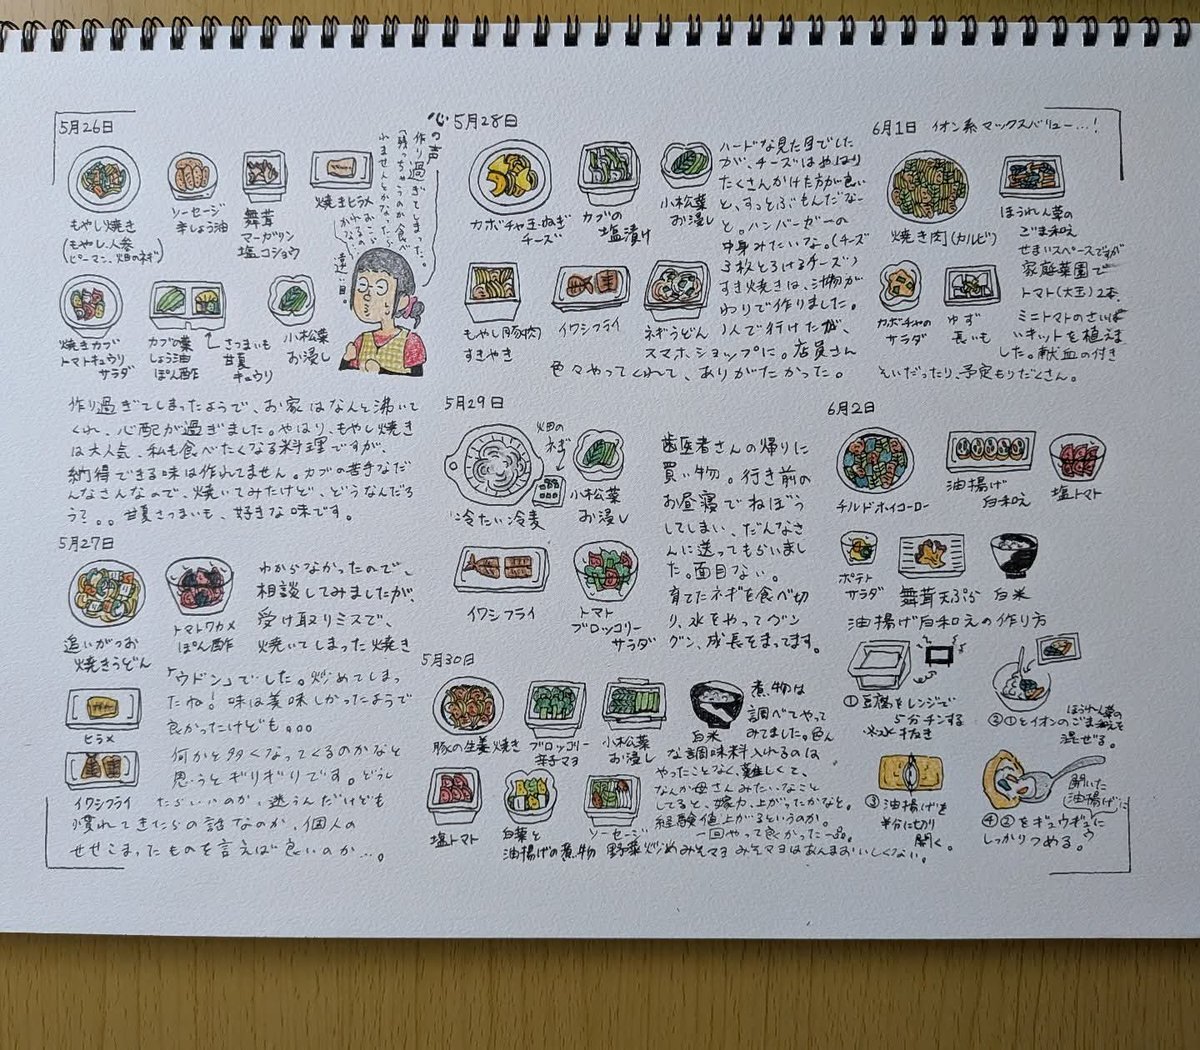 5月26日
もやし焼き
(もやし、人参
ピーマン、畑のネギ)
ソーセージ
辛しょう油
舞茸
マーガリン
塩コショウ
焼きヒラメ
焼きカブ
トマトキュウリ
サラダ
カブの葉
しょう油
ぽん酢
さつまいも
甘夏
キュウリ
小松菜
お浸し
心の声
作り過ぎてしまった。
「残っちゃうのか食べ
れませんとかなったら
遠い目。
作り過ぎてしまったようで、お家はなんと沸いて
くれ、心配が過ぎました。やはり、もやし焼き
は大人気、私も食べたくなる料理ですが、
納得できる味は作れてません。カブの苦手なだ
んなさんなので、焼いてみたけど、どうなんだろ
うて。。甘夏さつまいも、好きな味です。
5月27日
追いがつお
焼きうどん
トマトワカメ
ぽん酢
ヒラメ
イワシフライ
わからなかったので、
相談してみましたが、
受け取りミスで、
焼いてしまった焼き
「ウドン」でした。炒めてしまっ
たね!味は美味しかったようで
良かったけども。。。
何かと多くなってくるのかなと
思うとギリギリです。どうし
たらいいのか、迷うんだけども
慣れてきたらの話なのか、個人の
せせこまったものを言えば良いのか…。
5月28日
カボチャ玉ねぎ
チーズ
カブの
塩漬け
小松菜
お浸し
もやし豚肉
すきやき
イワシフライ
ネギうどん
ハードな見た目でした
が、チーズはやはり
たくさんかけた方が良い
と、すっとぶもんだなー
と。ハンバーガーの
中身みたいな。(チーズ
3枚とろけるチーズ)
すき焼きは、汁物が
わりで作りました。
1人で行けたが、
スマホショップに。店員さん
色々やってくれて、ありがたかった。
5月29日
冷たい冷麦
畑の
ネギ
小松菜
お浸し
イワシフライ
トマト
ブロッコリー
サラダ
歯医者さんの帰りに
買い物。行き前の
お昼寝でねぼう
してしまい、だんなさ
んに送ってもらいまし
た。面目ない。
育てたネギを食べ切
り、水をやってグン
グン、成長をまってます。
5月30日
豚の生姜焼き
ブロッコリー
辛子マヨ
小松菜
お浸し
白米
塩トマト
白菜と
油揚げの煮物
ソーセージ
野菜炒め
煮物は
調べてやって
みてました。色ん
な調味料入れるのは
やったことなく、難しくて、
なんか母さんみたいなこと
してると、嫁力、上がったかなと。
経験値上がるというのか。
一回やって良かったー。
みそマヨ みそマヨはあんまおいしくない。
6月1日 イオン系マックスバリュー…!
焼き肉(カルビ)
ほうれん草の
ごま和え
カボチャの
サラダ
ゆず
長いも
せまいスペースですが
家庭菜園で
トマト(大玉)2本、
ミニトマトのさいば
いキットを植えま
した。献血の付き
そいだったり、予定もりだくさん。
6月2日
チルドホイコーロー
油揚げ
白和え
塩トマト
ポテト
サラダ
舞茸天ぷら
白米
油揚げ白和えの作り方
①豆腐をレンジで
5分チンする
水抜き
②①とイオンのほうれん草の
ごま和えを
混ぜる。
③油揚げを
半分に切り
開く。
開いた
油揚げに
④②をギュウギュウに
しっかりつめる。